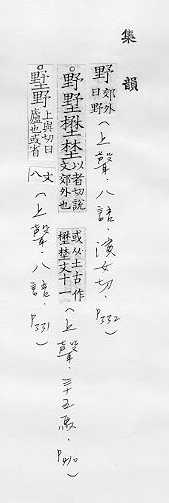 集韻
野 郊外曰野(上聲.八語.演女切.P332)
。野墅壄埜 以者切說文郊外也或从土古作壄埜文十一(上聲.三十五馬.P410)
。墅野 上與切田廬也或省文八(上聲.八語.P331)